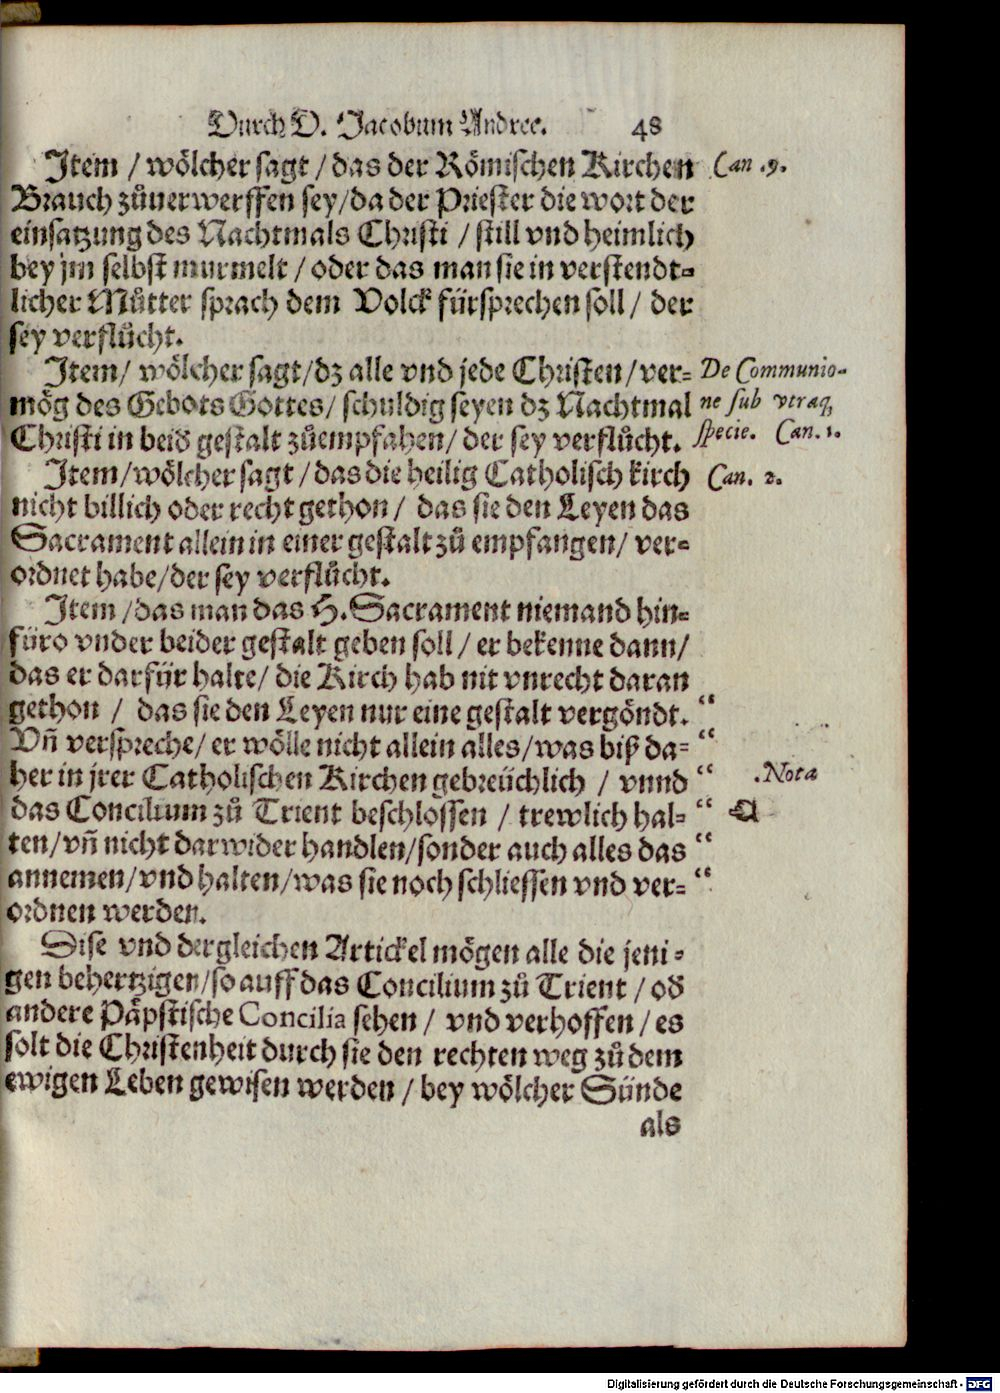 Durch D. Jacobum Andree. 48
Item / wölcher sagt / das der Römischen Kirchen Can .9.
Brauch zůuerwerffen sey/da der Priester die wort der
einsatzung des Nachtmals Christi / still vnd heimlich
bey jm selbst murmelt / oder das man sie in verstendt-
licher Můtter sprach dem Volck fürsprechen soll / der
sey verflůcht.
Item/ wölcher sagt/dz alle vnd jede Christen/ver- De Communio-
mög des Gebots Gottes/ schuldig seyen dz Nachtmal ne sub vtraq;
Christi in beid̕ gestalt zůempfahen/ der sey verflůcht. specie. Can. 1.
Item/wölcher sagt/das die heilig Catholisch kirch Can. 2.
nicht billich oder recht gethon / das sie den Leyen das
Sacrament allein in einer gestalt zů empfangen/ ver-
ordnet habe/der sey verflůcht.
Item /das man das H. Sacrament niemand hin-
füro vnder beider gestalt geben soll / er bekenne dann/
das er darfür halte/ die Kirch hab nit vnrecht daran
gethon / das sie den Leyen nur eine gestalt vergöndt. “
Vñ verspreche/ er wölle nicht allein alles/was biß da- “
her in jrer Catholischen Kirchen gebreüchlich / vnnd “ .Nota
das Concilium zů Trient beschlossen / trewlich hal- “ ☜
ten/vñ nicht darwider handlen/sonder auch alles das “
annemen/vnd halten/was sie noch schliessen vnd ver- “
ordnen werden.
Dise vnd dergleichen Artickel mögen alle die jeni-
gen behertzigen/so auff das Concilium zů Trient / od̕
andere Päpstische Concilia sehen / vnd verhoffen / es
solt die Christenheit durch sie den rechten weg zů dem
ewigen Leben gewisen werden / bey wölcher Sünde
als
Digitalisierung gefördert durch die Deutsche Forschungsgemeinschaft - DFG